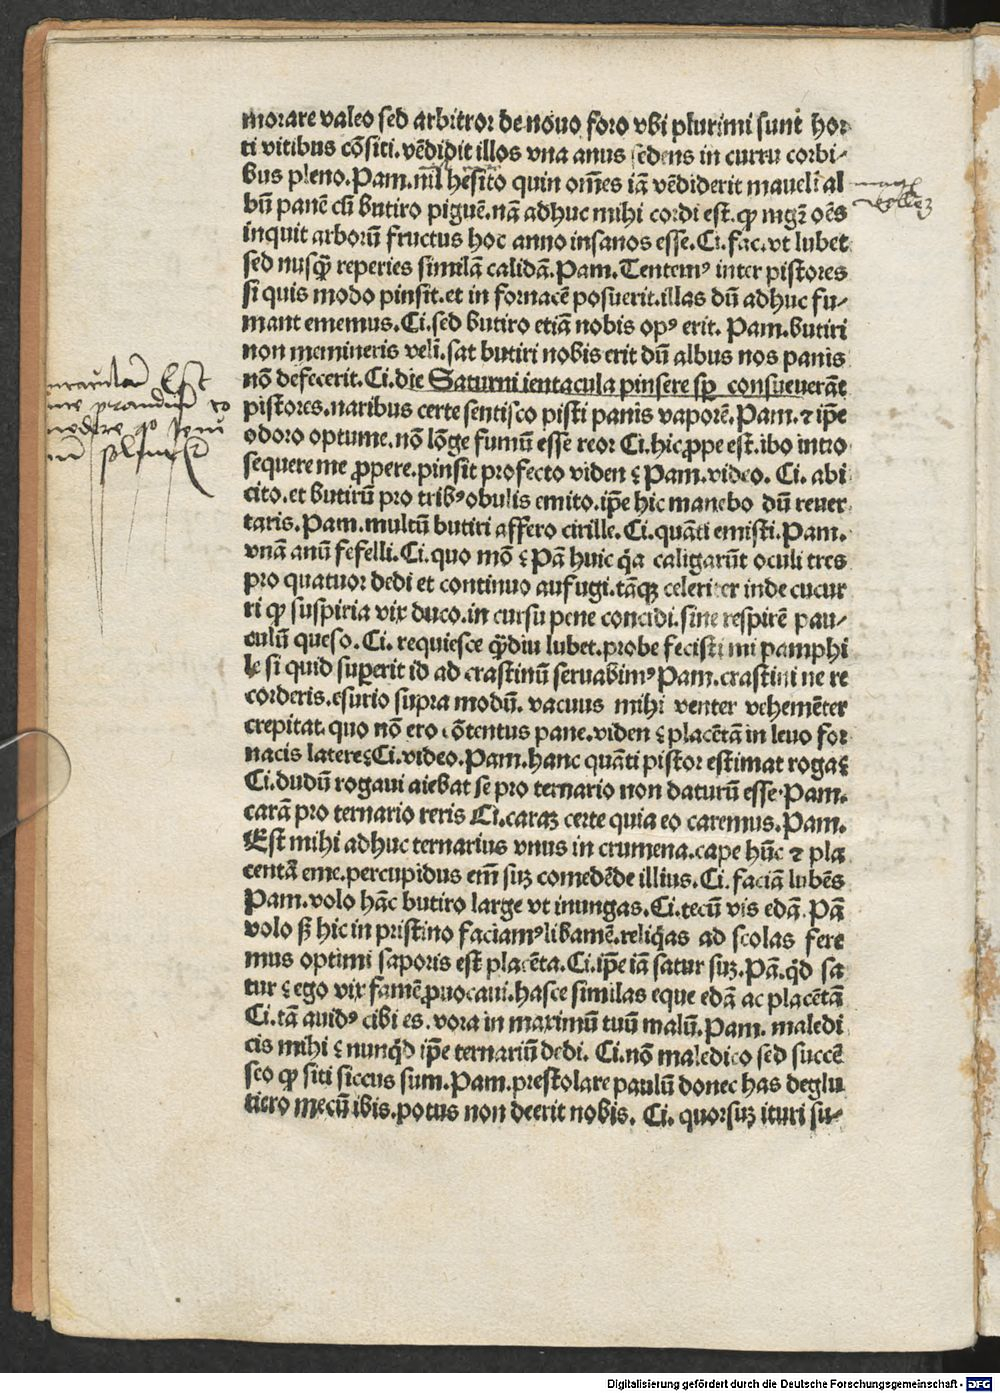 morare valeo sed arbitror de nouo foro vbi plurimi sunt hor⸗
ti vitibus cõsiti.vẽdidit illos vna anus sedens in curru corbi⸗
bus pleno.Pam.nil hesito quin om̃es iã vẽdiderit maueli al
bũ panẽ cũ butiro piguẽ.nã adhuc mihi cordi est.ꝙ mgr̃ oẽs
inquit arborũ fructus hoc anno insanos esse.Ci.fac.vt lubet
sed nusꝙ̃ reperies similã calidã.Pam.Tentemꝰ inter pistores
si quis modo pinsit.et in fornacẽ posuerit.illas dũ adhuc fu⸗
mant ememus.Ci.sed butiro etiã nobis opꝰ erit. Pam.butiri
non memineris veli.sat butiri nobis erit dũ albus nos panis
nõ defecerit.Ci.die Saturni ientacula pinsere sp̱ consueuerãt
pistores.naribus certe sentisco pisti panis vaporẽ.Pam.⁊ ip̃e
odoro optume.nõ lõge fumũ esse reor Ci.hic ꝓpe est.ibo intro
sequere me ꝓpere.pinsit profecto viden ? Pam.video. Ci. abi
cito.et butirũ pro tribꝰ obulis emito.ip̃e hic manebo dũ reuer
taris.Pam.multũ butiri affero cirille.Ci.quãti emisti.Pam.
vnã anũ fefelli.Ci.quo mõ ? Pã huic q̃a caligarũt oculi tres
pro quatuor dedi et continuo aufugi.tãqꝫ celeriter inde cucur
ri ꝙ suspiria vix duco.in cursu pene concidi.sine respirẽ pau⸗
culũ queso.Ci. requiesce ꝙ̃diu lubet.probe fecisti mi pamphi
le si quid suꝑerit id ad crastinũ seruabimꝰ Pam.crastini ne re
corderis.esurio supra modũ. vacuus mihi venter vehemẽter
crepitat.quo nõ ero cõtentus pane.viden ? placẽtã in leuo for
nacis latere?Ci.video.Pam.hanc quãti pistor estimat roga?
Ci.dudũ rogaui aiebat se pro ternario non daturũ esse.Pam.
carã pro ternario reris Ci.caraꝫ certe quia eo caremus.Pam.
Est mihi adhuc ternarius vnus in crumena.cape hũc ⁊ pla
centã eme.percupidus em̃ suꝫ comedẽde illius.Ci.faciã lubẽs
Pam.volo hãc butiro large vt inungas.Ci.tecũ vis edã.Pã
volo sꝫ hic in pristino faciamꝰ libamẽ.reliq̃as ad scolas fere
mus optimi saporis est placẽta.Ci.ip̃e iã satur suꝫ.Pã.q̃d sa
tur ? ego vix famẽ ꝓuocaui.hasce similas eque edã ac placẽtã
Ci.tã auidꝰ cibi es.vora in maximũ tuũ malũ.Pam. maledi
cis mihi ? nunq̃d ip̃e ternariũ dedi. Ci.nõ maledico sed succẽ
seo ꝙ siti siccus sum.Pam.prestolare paulũ donec has deglu
tiero mecũ ibis.potus non deerit nobis. Ci. quorsuꝫ ituri su⸗
Digitalisierung gefördert durch die Deutsche Forschungsgemeinschaft - DFG